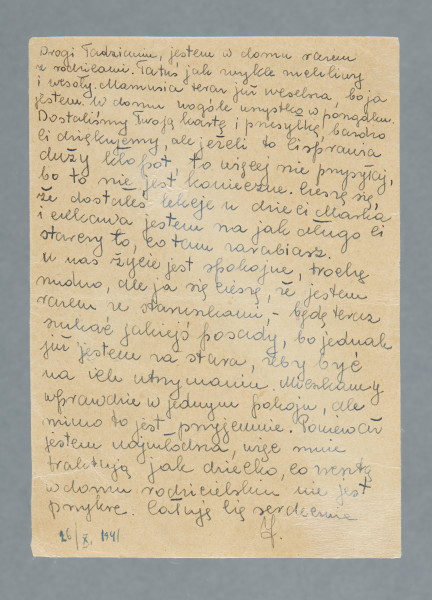 Drogi Tadziuniu, jestem w domu razem
z rodzicami. Tatuś jak zwykle ruchliwy
i wesoły. Mamusia teraz już weselna, bo ja
jestem. W domu wogóle wszystko w porządku.
Dostaliśmy Twoją kartę i przesyłkę, bardzo
Ci dziękujemy, ale jeżeli to Ci sprawia
duży kłopot, to więcej nie przysyłaj,
bo to nie jest konieczne. Cieszę się,
że dostałeś lekcje u dzieci Marka
i ciekawa jestem na jak długo Ci
starczy to, co tam zarabiasz.
U nas życie jest spokojne, trochę
nudno, ale ja się cieszę, że jestem
razem ze staruszkami, – będę teraz
szukać jakiejś posady, bo jednak
już jestem za stara, żeby być
na ich utrzymaniu. Mieszkamy
wprawdzie w jednym pokoju, ale
mimo to jest przyjemnie. Ponieważ
jestem najmłodsza, więc mnie
traktują jak dziecko, co zresztą
w domu rodzicielskim nie jest
przykre. Całuję Cię serdecznie
26/X. 1941